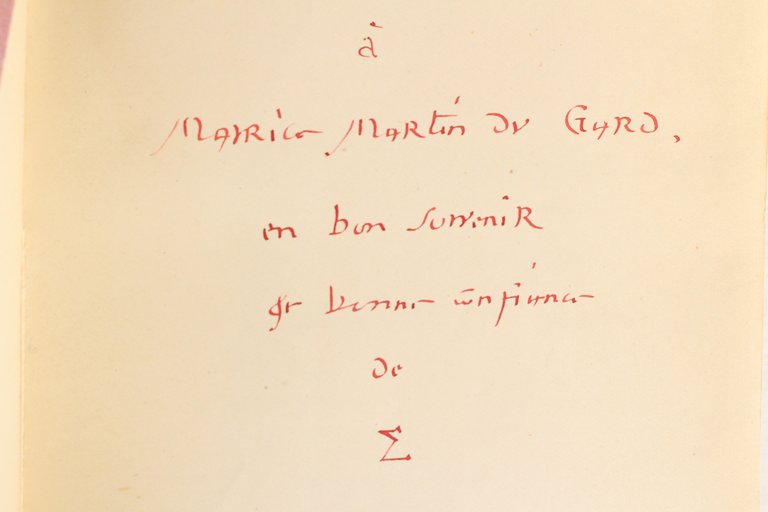 à
Maurice Martin du Gard,
en bon souvenir
et bonne confiance
de
Σ